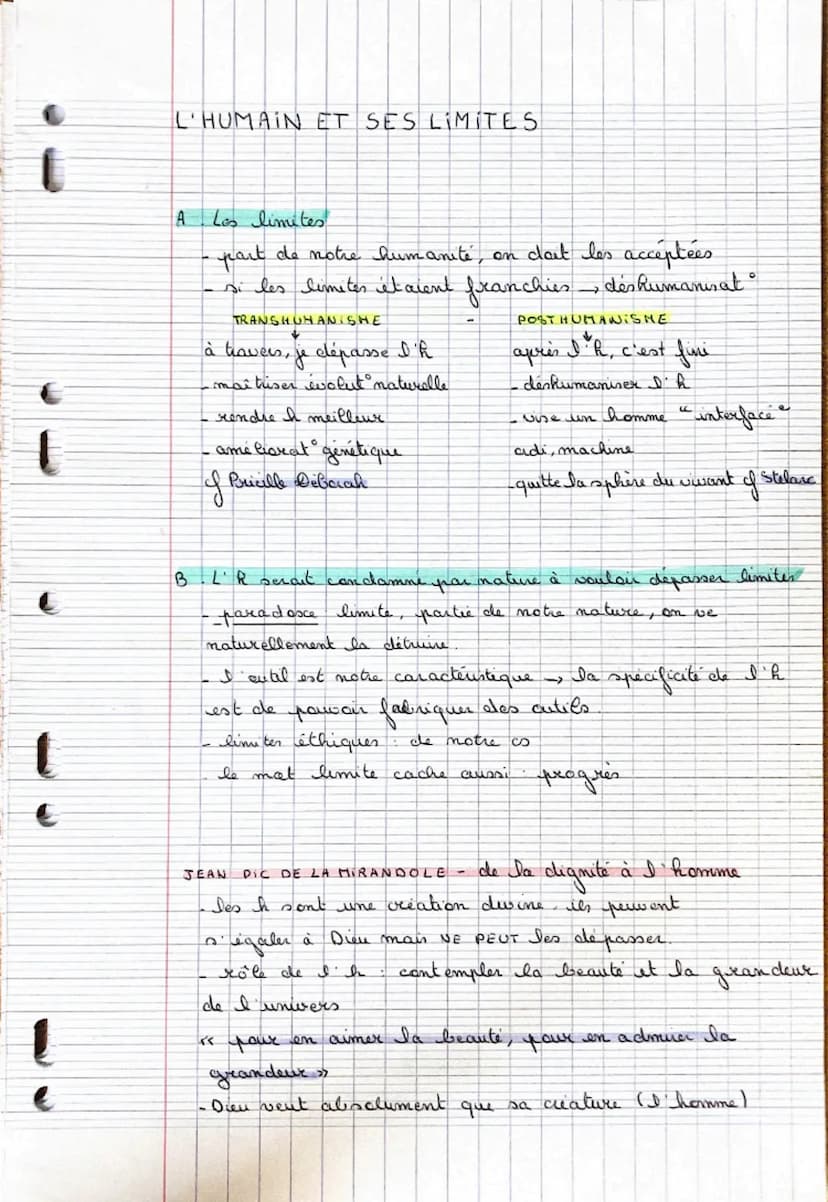 L'HUMAIN ET SES LIMITES
A. Les limites
- part de notre humanité, on doit les accéptées
- si les limites étaient franchies → déshumanisat°
TRANSHUMANISME - POSTHUMANISME
↓ ↓
à travers, je dépasse l'h après l'h, c'est fini
- maîtriser évolut° naturelle - déshumaniser l'h
- rendre h meilleur - vise un homme "interfacé"
- améliorat° génétique cadi, machine
cf Pricille Déborah - quitte la sphère du vivant cf Stelarc
B. L'h serait condamné par nature à vouloir dépasser limites
- paradoxe : limite, partie de notre nature, on ve
naturellement la détruire.
- l'outil est notre caractéristique → la spécificité de l'h
est de pouvoir fabriquer des outils.
- limites éthiques : de notre cs
- le mot limite cache aussi : progrès
JEAN PIC DE LA MIRANDOLE - de la dignité à l'homme
- les h sont une création divine, ils peuvent
s'égaler à Dieu mais NE PEUT les dépasser.
- rôle de l'h : contempler la beauté et la grandeur
de l'univers
« pour en aimer la beauté, pour en admirer la
grandeur »
- Dieu veut absolument que sa créature (l'homme)